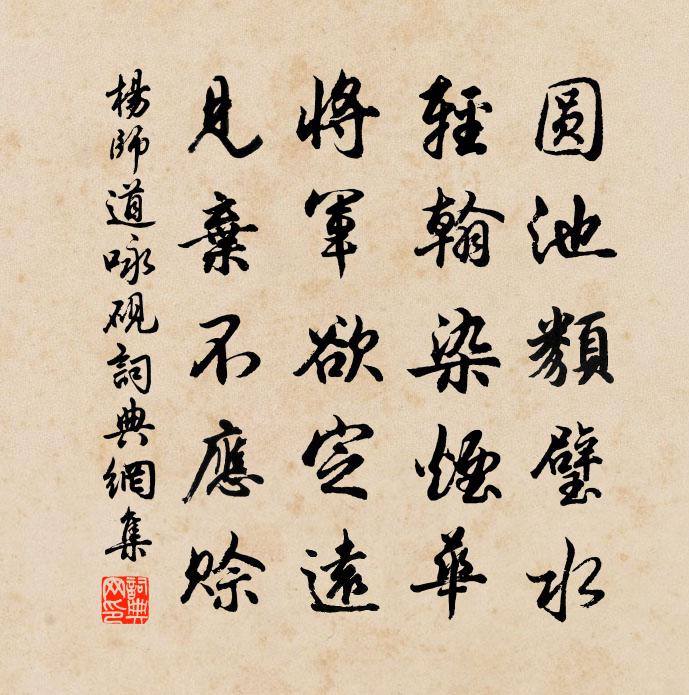 圓池類璧水
輕翰染煙華
將軍欲定遠
見棄不應賒
楊師道咏硯詞典網集
詞典網印